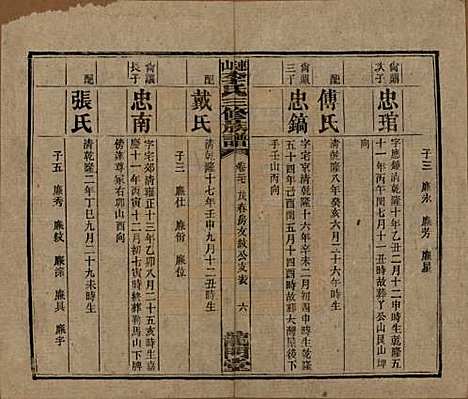 尚讓次子
忠琯
字應
清乾隆十年乙丑二月十二申時生乾隆五
十一年丙午閏七月十一时故葬丫公山艮山坤
向
子三 廉永 廉芳 廉星
配
傅氏
清乾隆八年癸亥六月二十六午時生
尚讓三子
忠鎬
字宅京清乾隆十六年辛未二月初四申時生乾隆
五十四年己酉十月十四酉時故葬大灣屋後下
手壬山丙向
配
戴氏
清乾隆十七年壬申九月十二戌時生
子三 廉仕 廉份 廉位
李氏三修族譜
卷三
茂春房友
公支
六
龍門堂
長子
忠南
字宅郊清雍正十三年乙卯八月二十五亥時生嘉
慶十一年丙寅十二月初七寅時終葬馬山下牌
傍達尊冢右卯山酉向
配
張氏
清乾隆二年丁巳九月二十九未時生
子五 廉秀 廉紋 廉深 廉具 廉宇